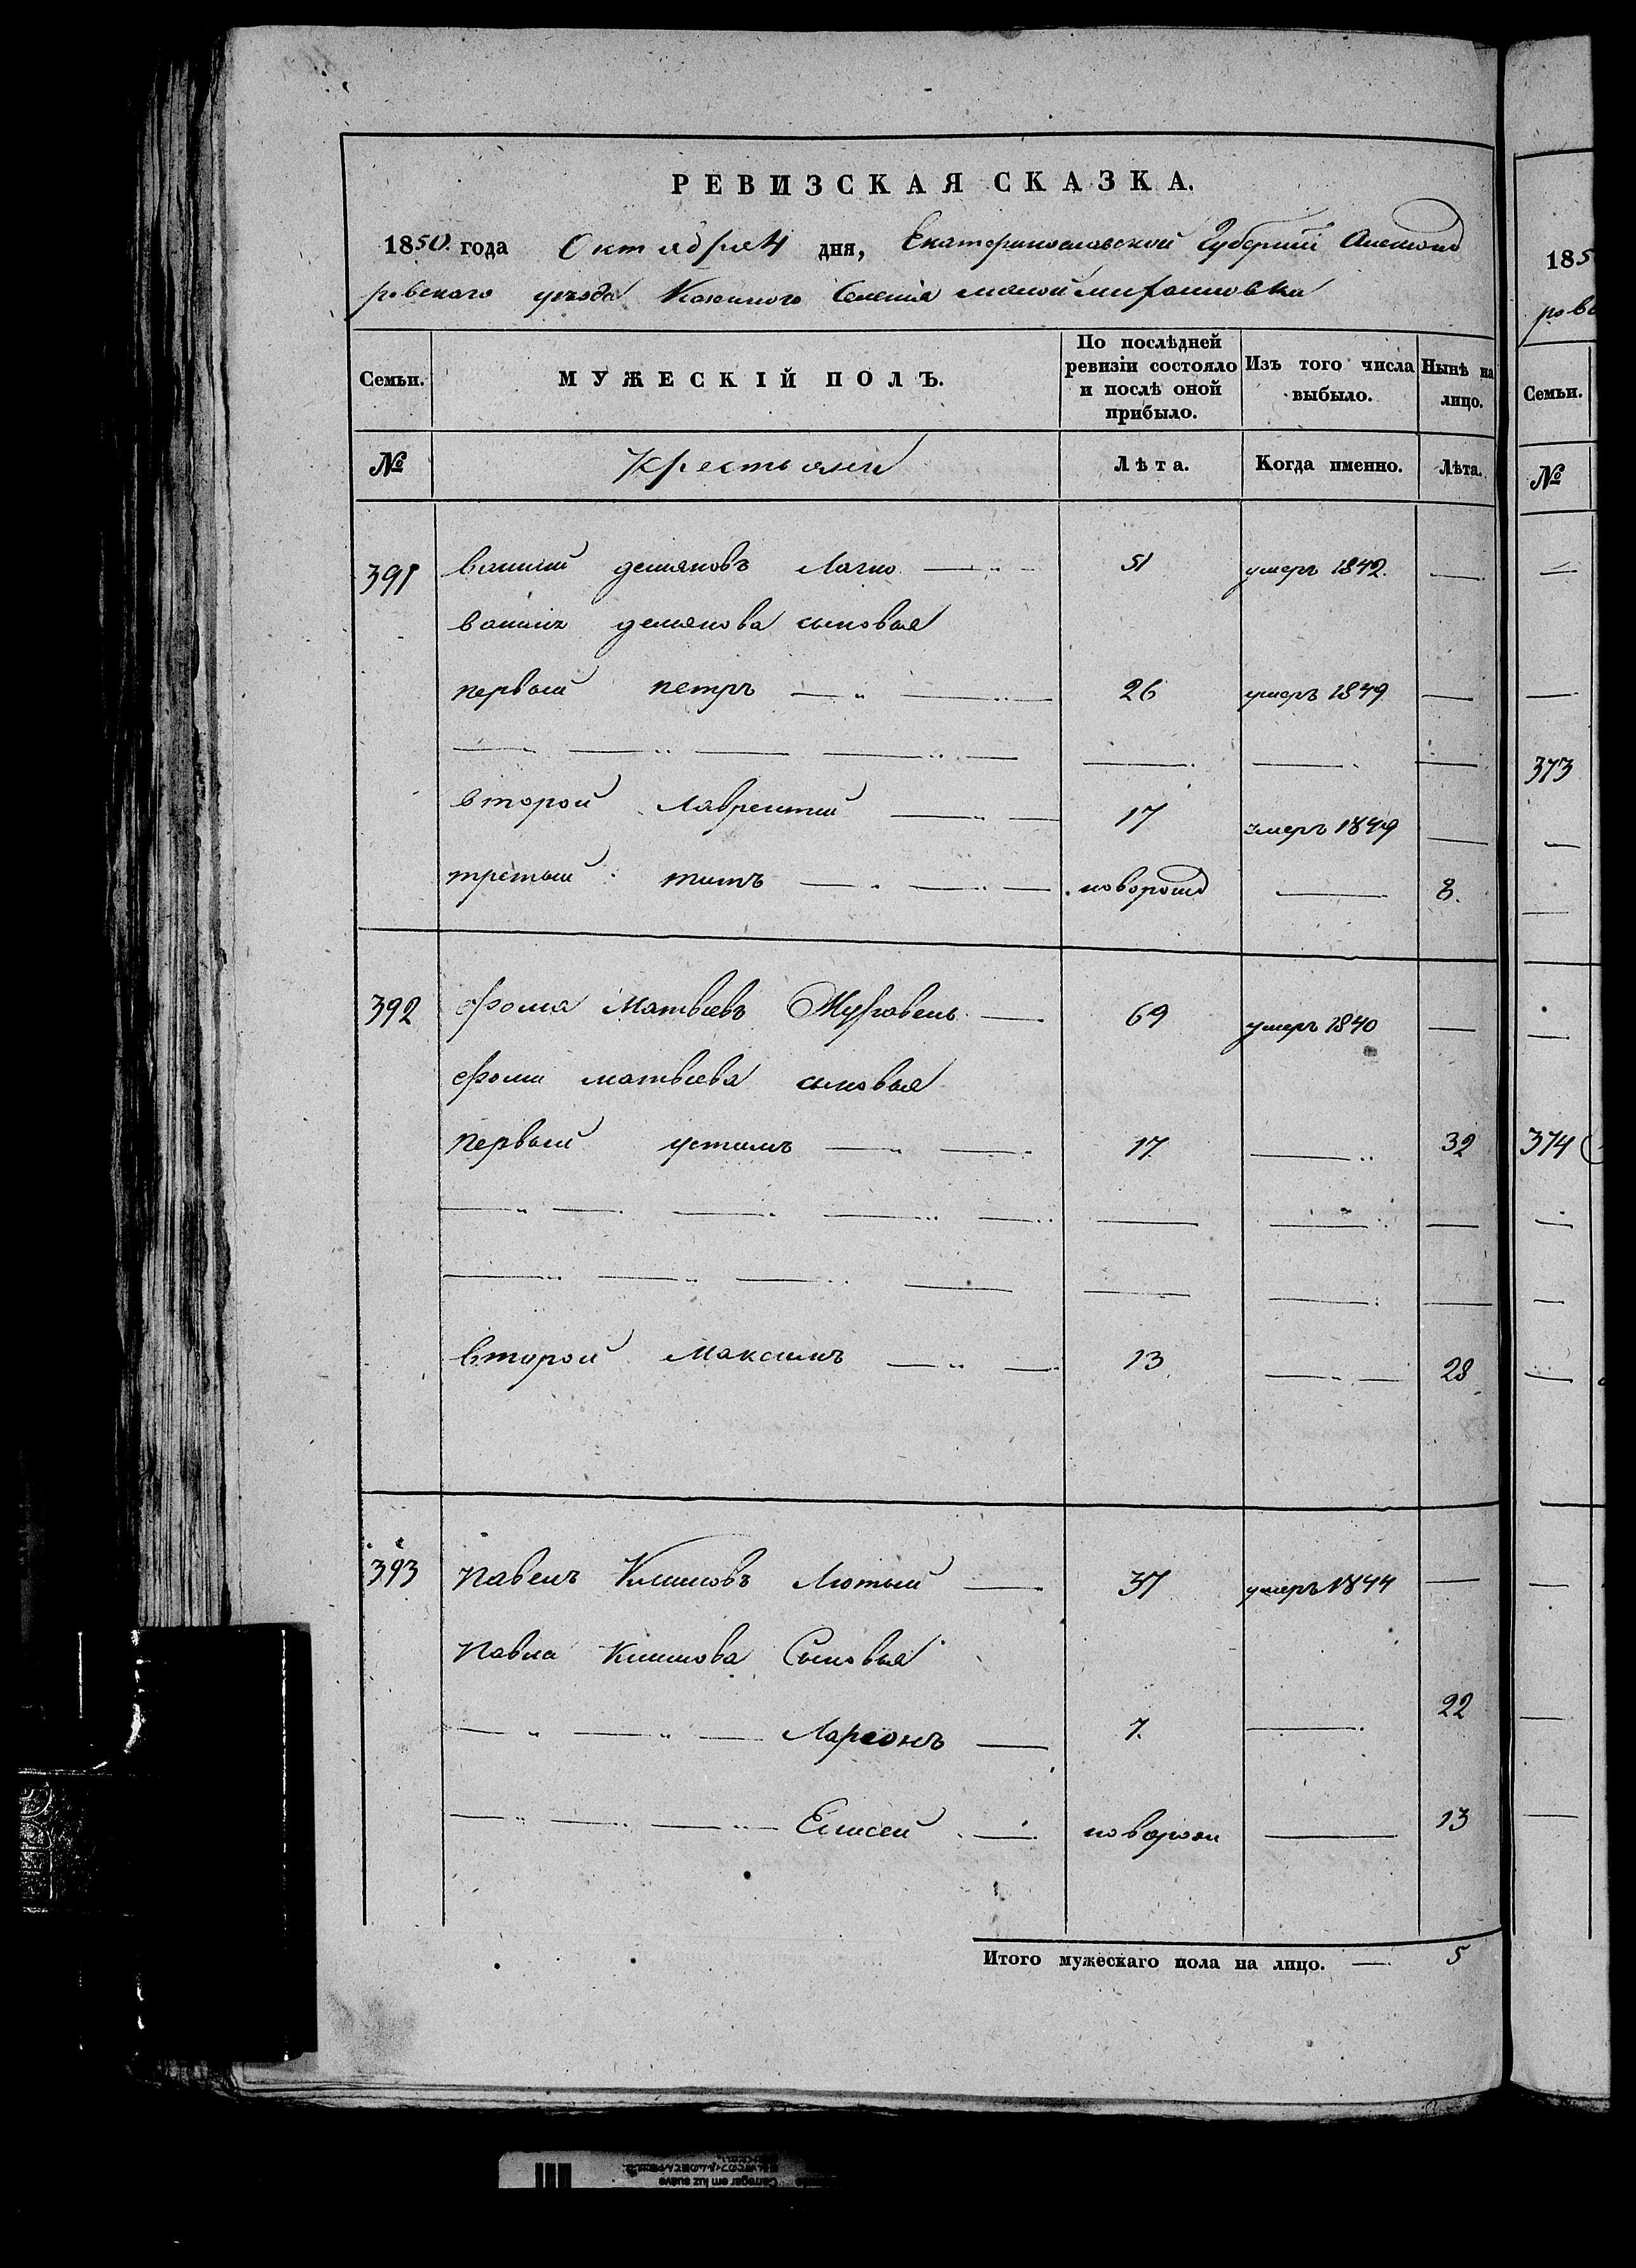 РЕВИЗСКАЯ СКАЗКА.
1850. года Октября 4 дня, Екатеринославской Губернии Александ
ровскаго уезда Казенного Селения малой михайловки
Семьи. МУЖЕСКІЙ ПОЛЪ. По послѣдней ревизіи состояло и послѣ оной прибыло. Изъ того числа выбыло. Нынѣ на лицо.
№ Крестьяни Лѣта. Когда именно. Лѣта.
391 василий демяновъ Лагно 51 умеръ 1842.
василя демянова сыновья
первый петръ 26 умеръ 1849
второй Лаврентий 17 умеръ 1849
третьий титъ новорожд 8.
392 фома Матвѣевъ Журавель 69 умеръ 1840
фоми матвѣева сыновья
первый устимъ 17 32
второй Максимъ 13 28
393 павелъ Климовъ Лютый 37 умеръ 1844
павла климова Сыновья
Ларионъ 7. 22
Елисей новорож 13
Итого мужескаго пола на лицо. 5
185
рова
Семьи.
№
373
374